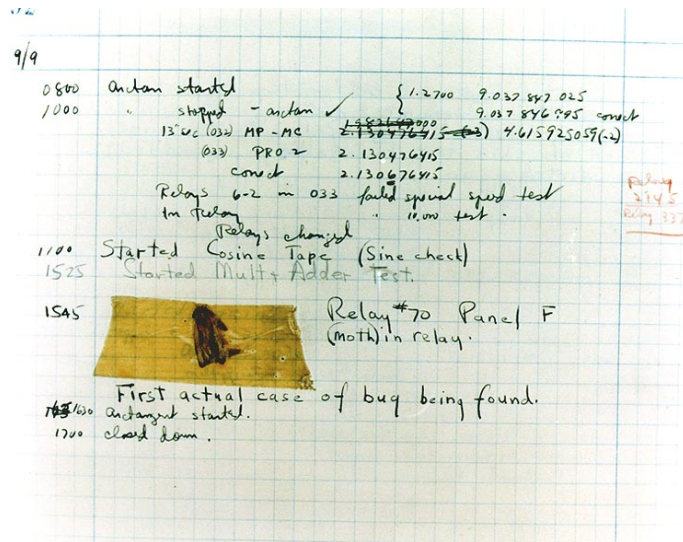 9/9
0800 arctan started { 1.2700 9.037 847 025
1000 " stopped - arctan ✓ 9.037 846 795 correct
13" uc (032) MP - MC 2.130476415 (-3) 4.615925059(-2)
(033) PRO 2 2.130476415
correct 2.130676415
Relays 6-2 in 033 failed special speed test
In Relay " 10.000 test "
Relay
2145
Relay 337
Relays changed
1100 Started Cosine Tape (Sine check)
1525 Started Mult+ Adder Test.
1545 Relay #70 Panel F
(moth) in relay.
First actual case of bug being found.
1630 arctangent started.
1700 closed down.